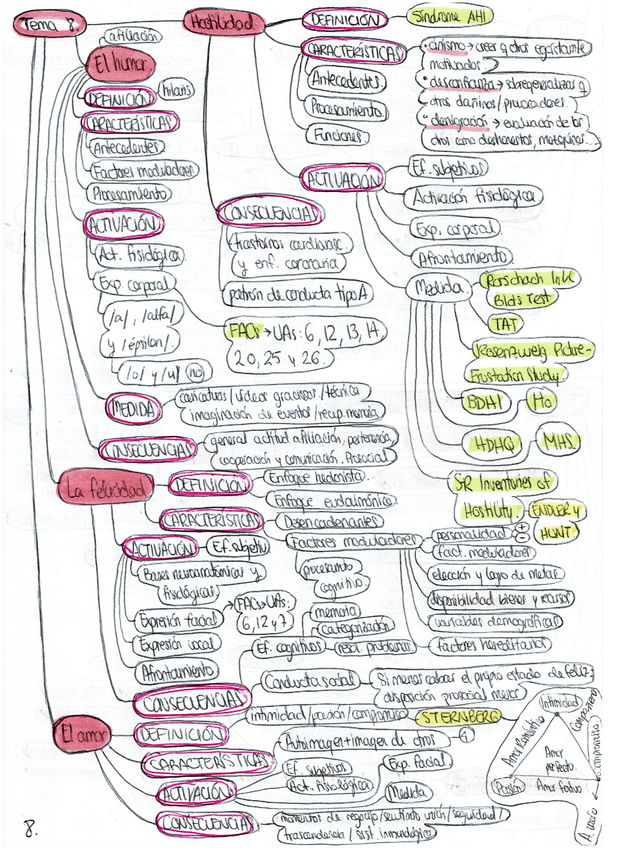 Tema 8.
Hostilidad
DEFINICIÓN
Síndrome AHI
CARACTERÍSTICAS
• cinismo → creer q otros egoístamente
motivados
• desconfianza → sobregeneralizar q
otros dañinos / provocadores.
• denigración → evaluación de los
otros como deshonestos, mezquinos...
Antecedentes
Procesamiento
Funciones
ACTIVACIÓN
Ef. subjetivos
Activación fisiológica
Exp. corporal
Afrontamiento
Medida
Rorschach Ink
Blots Test
TAT
Rosenzweig Picture-
Frustation Study.
BDHI
Ho
HDHQ
MHS
SR Inventories of
Hostility
ENDLER y
HUNT
CONSECUENCIAS
trastornos cardiovasc.
y enf. coronaria
patrón de conducta tipo A
afiliación
El humor
DEFINICIÓN
hilaris
CARACTERÍSTICAS
Antecedentes
Factores moduladores
Procesamiento
ACTIVACIÓN
Act. fisiológica
Exp. corporal
/a/, /alfa/
y /épsilon/.
/o/ y /u/ no
FACS → UAs: 6, 12, 13, 14
20, 25 y 26.
MEDIDA
caricaturas / vídeos graciosos / técnica
imaginación de eventos / recup. memoria
CONSECUENCIAS
general actitud afiliación, pertenencia,
cooperación y comunicación. Prosocial
La felicidad
DEFINICIÓN
Enfoque hedonista.
Enfoque eudaimónico
CARACTERÍSTICAS
Desencadenantes
Factores moduladores
personalidad + -
fact. moduladores
elección y logro de metas
disponibilidad bienes y recursos
variables demográficas
factores hereditarios
procesamto
cognitivo
ACTIVACIÓN
Ef. subjetiv
Bases neuroanatómicas y
fisiológicas
Expresión facial
→ FACS UAs:
6, 12 y 7
Expresión vocal
Afrontamiento
CONSECUENCIAS
Ef. cognitivos
memoria
categorización
resol. problemas
Conducta social
disposición prosocial mejor
El amor
DEFINICIÓN
intimidad / pasión / compromiso
STERNBERG
Intimidad
Compañero
compromiso
Amor Romántico
Amor
perfecto.
Pasión
Amor fatuo.
A. vacío
CARACTERÍSTICAS
Autoimagen + imagen de otros
ACTIVACIÓN
Ef. subjetivos
Act. fisiológica
Exp. facial
Medida
CONSECUENCIAS
momentos de regocijo / sentimto unión / seguridad /
trascendencia / sist. inmunológico
8.